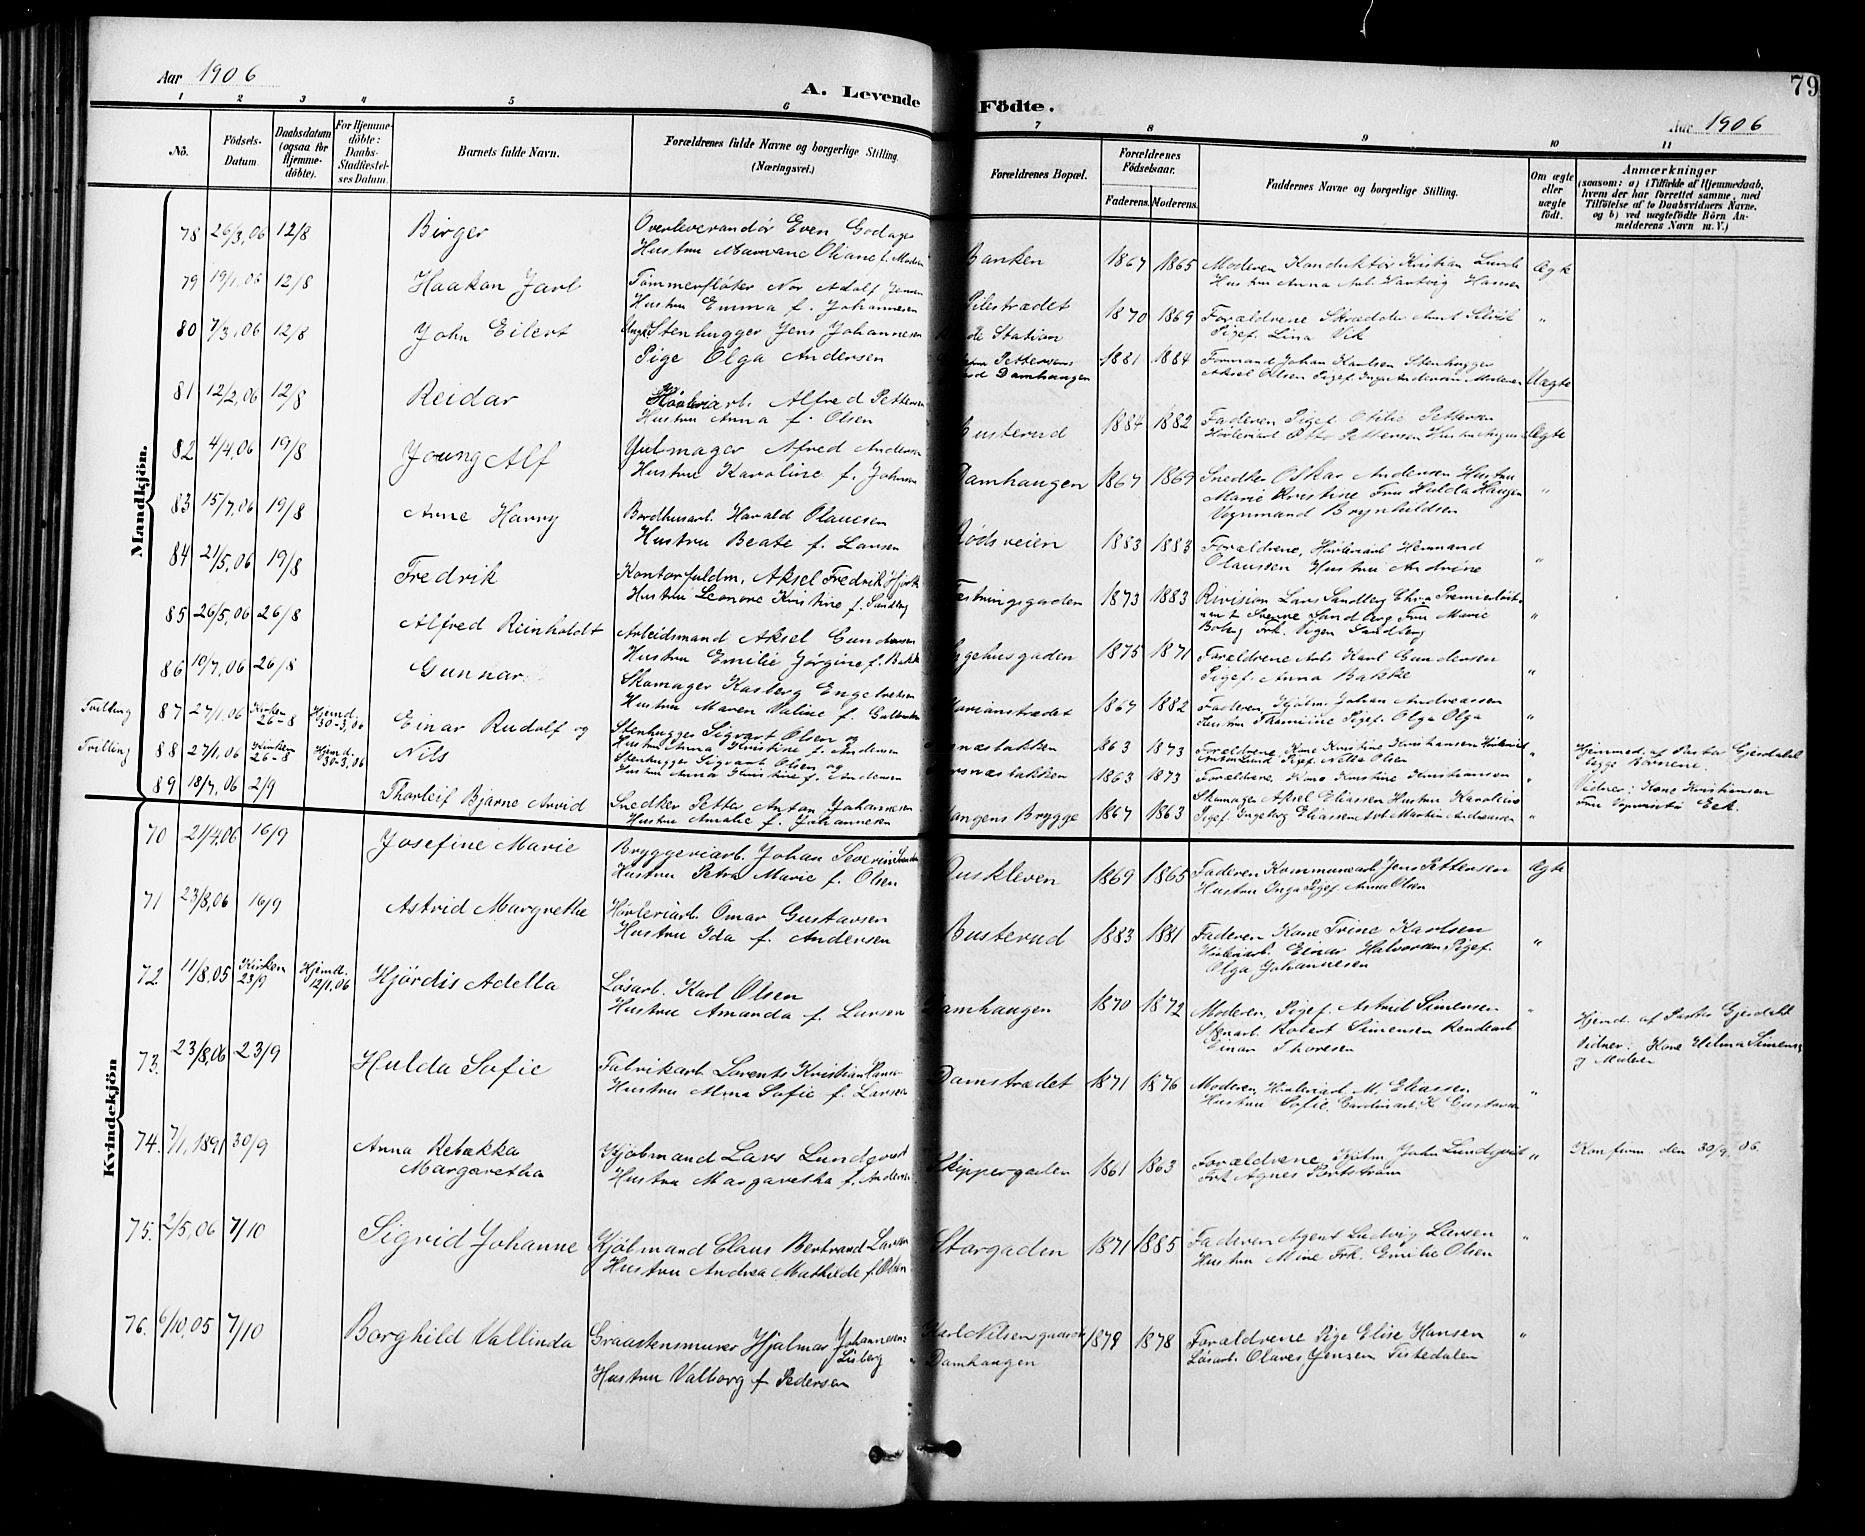 Aar 1906
A. Levende
Födte.
79
Aar 1906
1 2 3 4 5 6 7 8 9 10 11
Nô.
Födsels-
Datum.
Daabsdatum
(ogsaa for
Hjemme-
döbte).
For Hjemme-
döbte:
Daabs-
Stadfæstel-
ses Datum.
Barnets fulde Navn.
Forældrenes fulde Navne og borgerlige Stilling.
(Næringsvei.)
Forældrenes Bopæl.
Forældrenes
Födselsaar.
Faderens. Moderens.
Faddernes Navne og borgerlige Stilling.
Om ægte
eller
uægte
födt.
Anmærkninger
(saasom: a) i Tilfælde af Hjemmedaab,
hvem der har forrettet samme, med
Tilföielse af to Daabsvidners Navne,
og b) ved uægtefödte Börn An-
melderens Navn m. V.)
Mandkjön.
78 26/3,06 12/8 Birger
Overleverandör Even Godager
Hustru Marvane Oliane f. Moden
Banken 1867 1865
Moderen Konduktör Kristian Lunde
Hustru Anna Arb. Hartvig Hansen
Ægte
79 19/1,06 12/8 Haakon Jarl
Tømmerfløter Nor Adolf Jensen
Hustru Emma f. Johannesen
Pilestrædet 1870 1869
Forældrene Skrædder Amt
Pigef. Lina Vik
"
80 7/3,06 12/8 John Eilert
Ungk Stenhugger Jens Johannesen
Pige Olga Andersen
Station
Pettersens
Damhaugen 1881 1884
Formand Johan Karlsen Stenhugger
Aksel Olsen Pigef. Inga Andersen Moderen
Uægte
81 12/2,06 12/8 Reidar
Høvleriarb. Alfred Pettersen
Hustru Anna f. Olsen
Busterud 1884 1882
Faderen Pigef. Otilie Pettersen
Høvleriarb Otto Pettersen Hustru
Ægte
82 4/4,06 19/8 Young Alf
Gulmager Alfred Andersen
Hustru Karoline f. Johnsen
Damhaugen 1867 1869
Snedker Oskar Andersen Hustru
Marie Kristine Fru Hulda Haugen
Vognmand Brynhildsen
"
83 15/7,06 19/8 Arne Harry
Bordhusarb. Harald Olausen
Hustru Beate f. Larsen
Rødsveien 1883 1883
Forældrene, Høvleriarb Hermand
Olaussen Hustru Andrine
"
84 21/5,06 19/8 Fredrik
Kontorfuldm. Aksel Fredrik Hjorth
Hustru Leonore Kristine f. Sandberg
Fæstningsgaden 1873 1883
Revision Lars Sandberg
Sverre Sandberg Fru Marie
Boberg Frk. Vigen Sandberg
"
85 26/5,06 26/8 Alfred Reinholdt
Arbeidsmand Aksel Gundersen
Hustru Emilie Jørgine f. Bakke
Sygehusgaden 1875 1871
Forældrene Arb. Karl Gundersen
Pigef. Anna Bakke
"
86 10/7,06 26/8 Gunnar
Skomager Kasberg Engebretsen
Hustru Maren Valine f.
Marianstrædet 1867 1882
Faderen, Kjølm. Johan Andreassen
Hustru Pigef. Olga Olga
"
Tvilling 87 27/1,06 Kirken
26-8 Hjemd.
30-3,06 Einar Rudolf og
Stenhugger Sigvart Olsen og
Hustru Anna Kristine f. Andersen
1863 1873
Forældrene Kone Kristine Kristiansen
Anton Lund Pigef. Netta Olsen
"
Hjemmed. af Pastor Gjerdahl
begge Börnene.
Tvilling 88 27/1,06 Kirken
26-8 Hjemd.
30-3,06 Nils
Stenhugger Sigvart Olsen og
Hustru Anna Kristine f. Andersen
1863 1873
Forældrene, Kone Kristine Kristiansen
"
Vidner: Kone Kristiansen
Fru Eek.
89 18/7,06 2/9 Thorleif Bjarne Arvid
Snedker Petter Anton Johannesen
Hustru Amalie f. Johannesen
Langens Brygge 1867 1863
Skomager Aksel Eliassen Hustru Karoline
Pigef. Ingeborg Eliassen Arb. Martin Andreassen
"
Kvindekjön
70 21/4,06 16/9 Josefine Marie
Bryggeriarb. Johan Severin
Hustru Petra Marie f. Olsen
Ouskleven 1869 1865
Faderen Kommunearb Jens Pettersen
Hustru Inga Pigef. Anna Olsen
Ægte
71 23/8,06 16/9 Astrid Margrethe
Høvleriarb. Omar Gustavsen
Hustru Ida f. Andersen
Busterud 1883 1881
Faderen Kone Trine Karlsen
Høvleriarb. Einar Halvorsen Pigef.
Olga Johannesen
"
72. 11/8,05 Kirken
23/9 Hjemd.
12/1,06 Hjørdis Adella
Løsarb. Karl Olsen
Hustru Amanda f. Larsen
Damhaugen 1870 1872
Moderen, Pigef. Astrid Simensen
Stenarb Robert Simensen Rendearb
Einar Thoresen
"
Hjemd. af Pastor Gjerdahl
Vidner: Kone Helma Simensen
og Moderen
73. 23/8,06 23/9 Hulda Sofie
Fabrikarb. Lorents Kristian
Hustru Alma Sofie f. Larsen
Damstrædet 1871 1876
Moderen, Høvleriarb M. Eliassen
Hustru Sofie, K. Gustavsen
"
74. 7/1,1891 30/9 Anna Rebekka
Margaretha
Kjøbmand Lars Lundqvist
Hustru Margaretha f. Andersen
Skippergaden 1861 1863
Forældrene, Kjøbm. John Lundqvist
Frk Agnes
"
Konfirm. den 30/9 06.
75. 2/5,06 7/10 Sigrid Johanne
Kjøbmand Claus Bertrand Larsen
Hustru Andrea Mathilde f. Olsen
Storgaden 1871 1885
Faderen Agent Ludvig Larsen
Hustru Mine Frk. Emilie Olsen
"
76. 6/10,05 7/10 Borghild Vallinda
Graastensmurer Hjalmar Johannesen
Lisberg
Hustru Valborg f. Pedersen
Karl Nilsengaarden
Damhaugen 1879 1878
Forældrene Pige Elise Hansen
Løsarb. Olaves Jensen Tistedalen
"